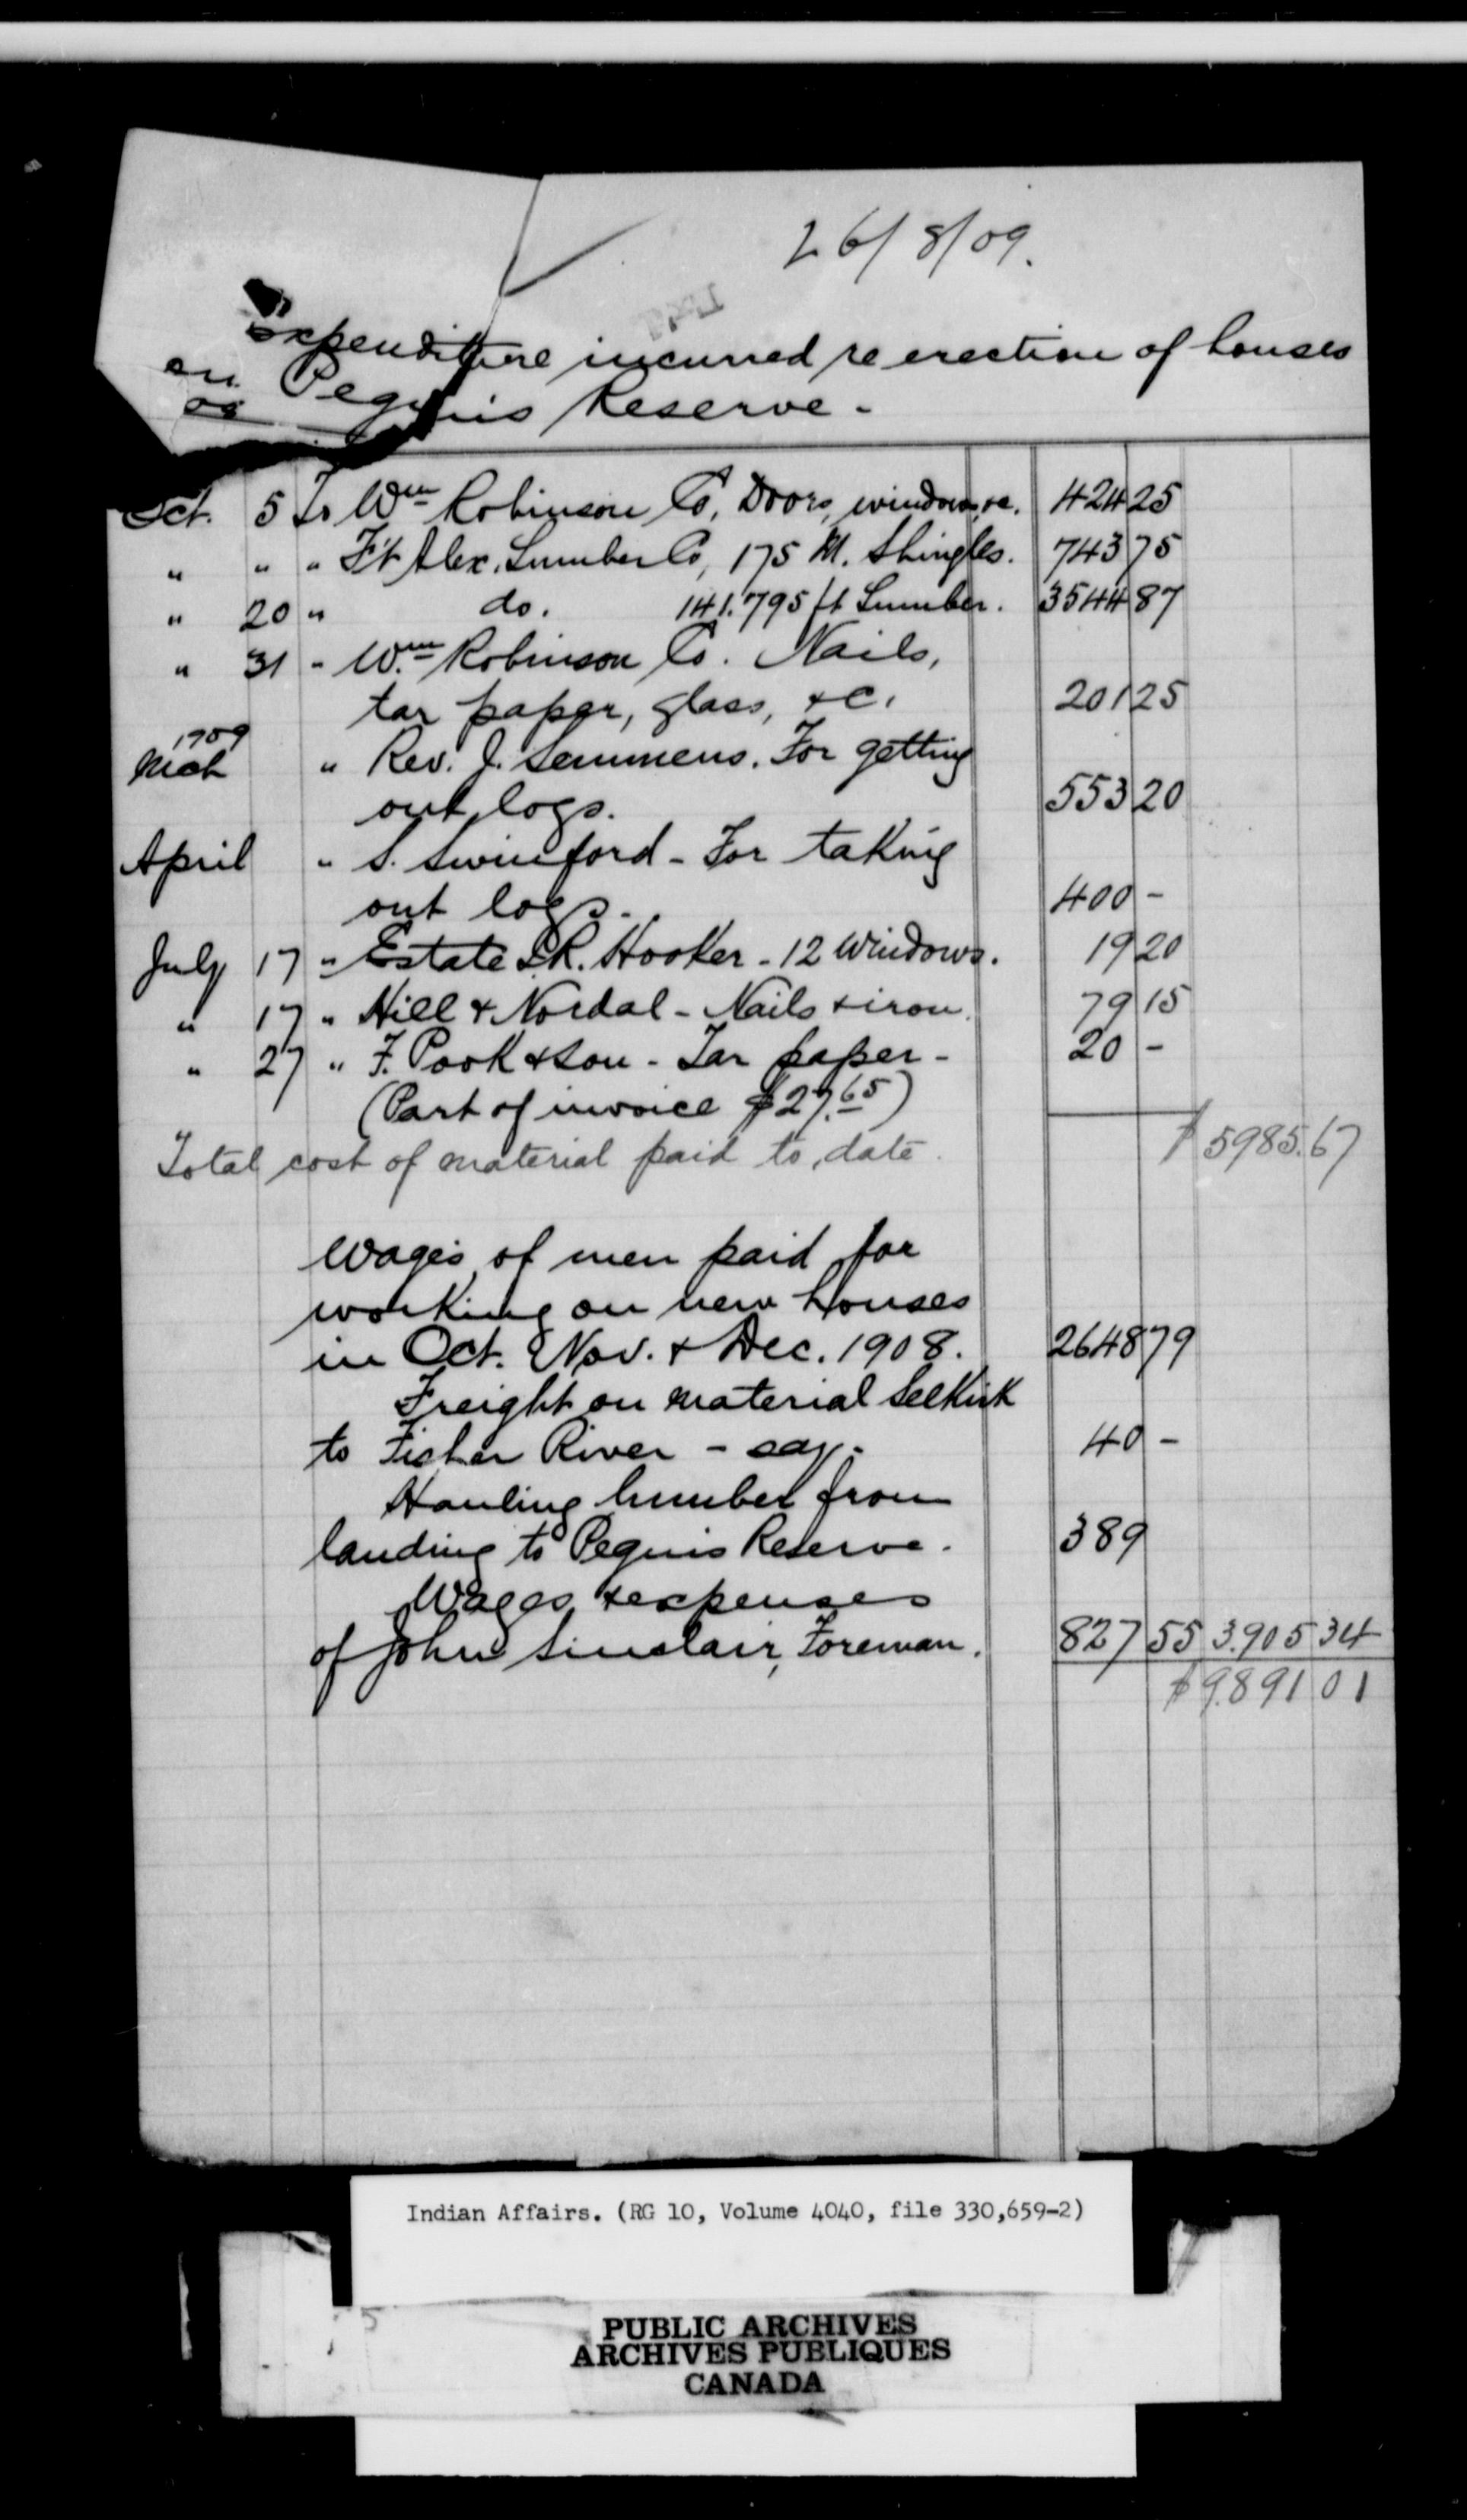 26/8/09.
Expenditure incurred re erection of houses
on Peguis Reserve -
08
Oct. 5 To Wm Robinson Co, Doors, windows, &c. 424 25
" " " Ft Alex. Lumber Co, 175 M. Shingles. 743 75
" 20 " do. 141.795 ft Lumber. 3544 87
" 31 " Wm Robinson Co. Nails,
tar paper, glass, &c. 201 25
1909
Mch " Rev. J. Semmens. For getting
out logs. 553 20
April " S. Swinford - For taking
out logs. 400 -
July 17 " Estate S.R. Hooker - 12 Windows. 19 20
" 17 " Hill & Nordal - Nails & iron. 79 15
" 27 " F. Pook & Son - Tar paper - 20 -
(Part of invoice $27.65)
Total cost of material paid to date. $5985.67
Wages of men paid for
working on new houses
in Oct. Nov. & Dec. 1908. 2648 79
Freight on material Selkirk
to Fisher River - say - 40 -
Hauling lumber from
landing to Peguis Reserve. 389
Wages & expenses
of John Sinclair, Foreman. 827 55 3.905 34
$9.891 01
Indian Affairs. (RG 10, Volume 4040, file 330,659-2)
PUBLIC ARCHIVES
ARCHIVES PUBLIQUES
CANADA